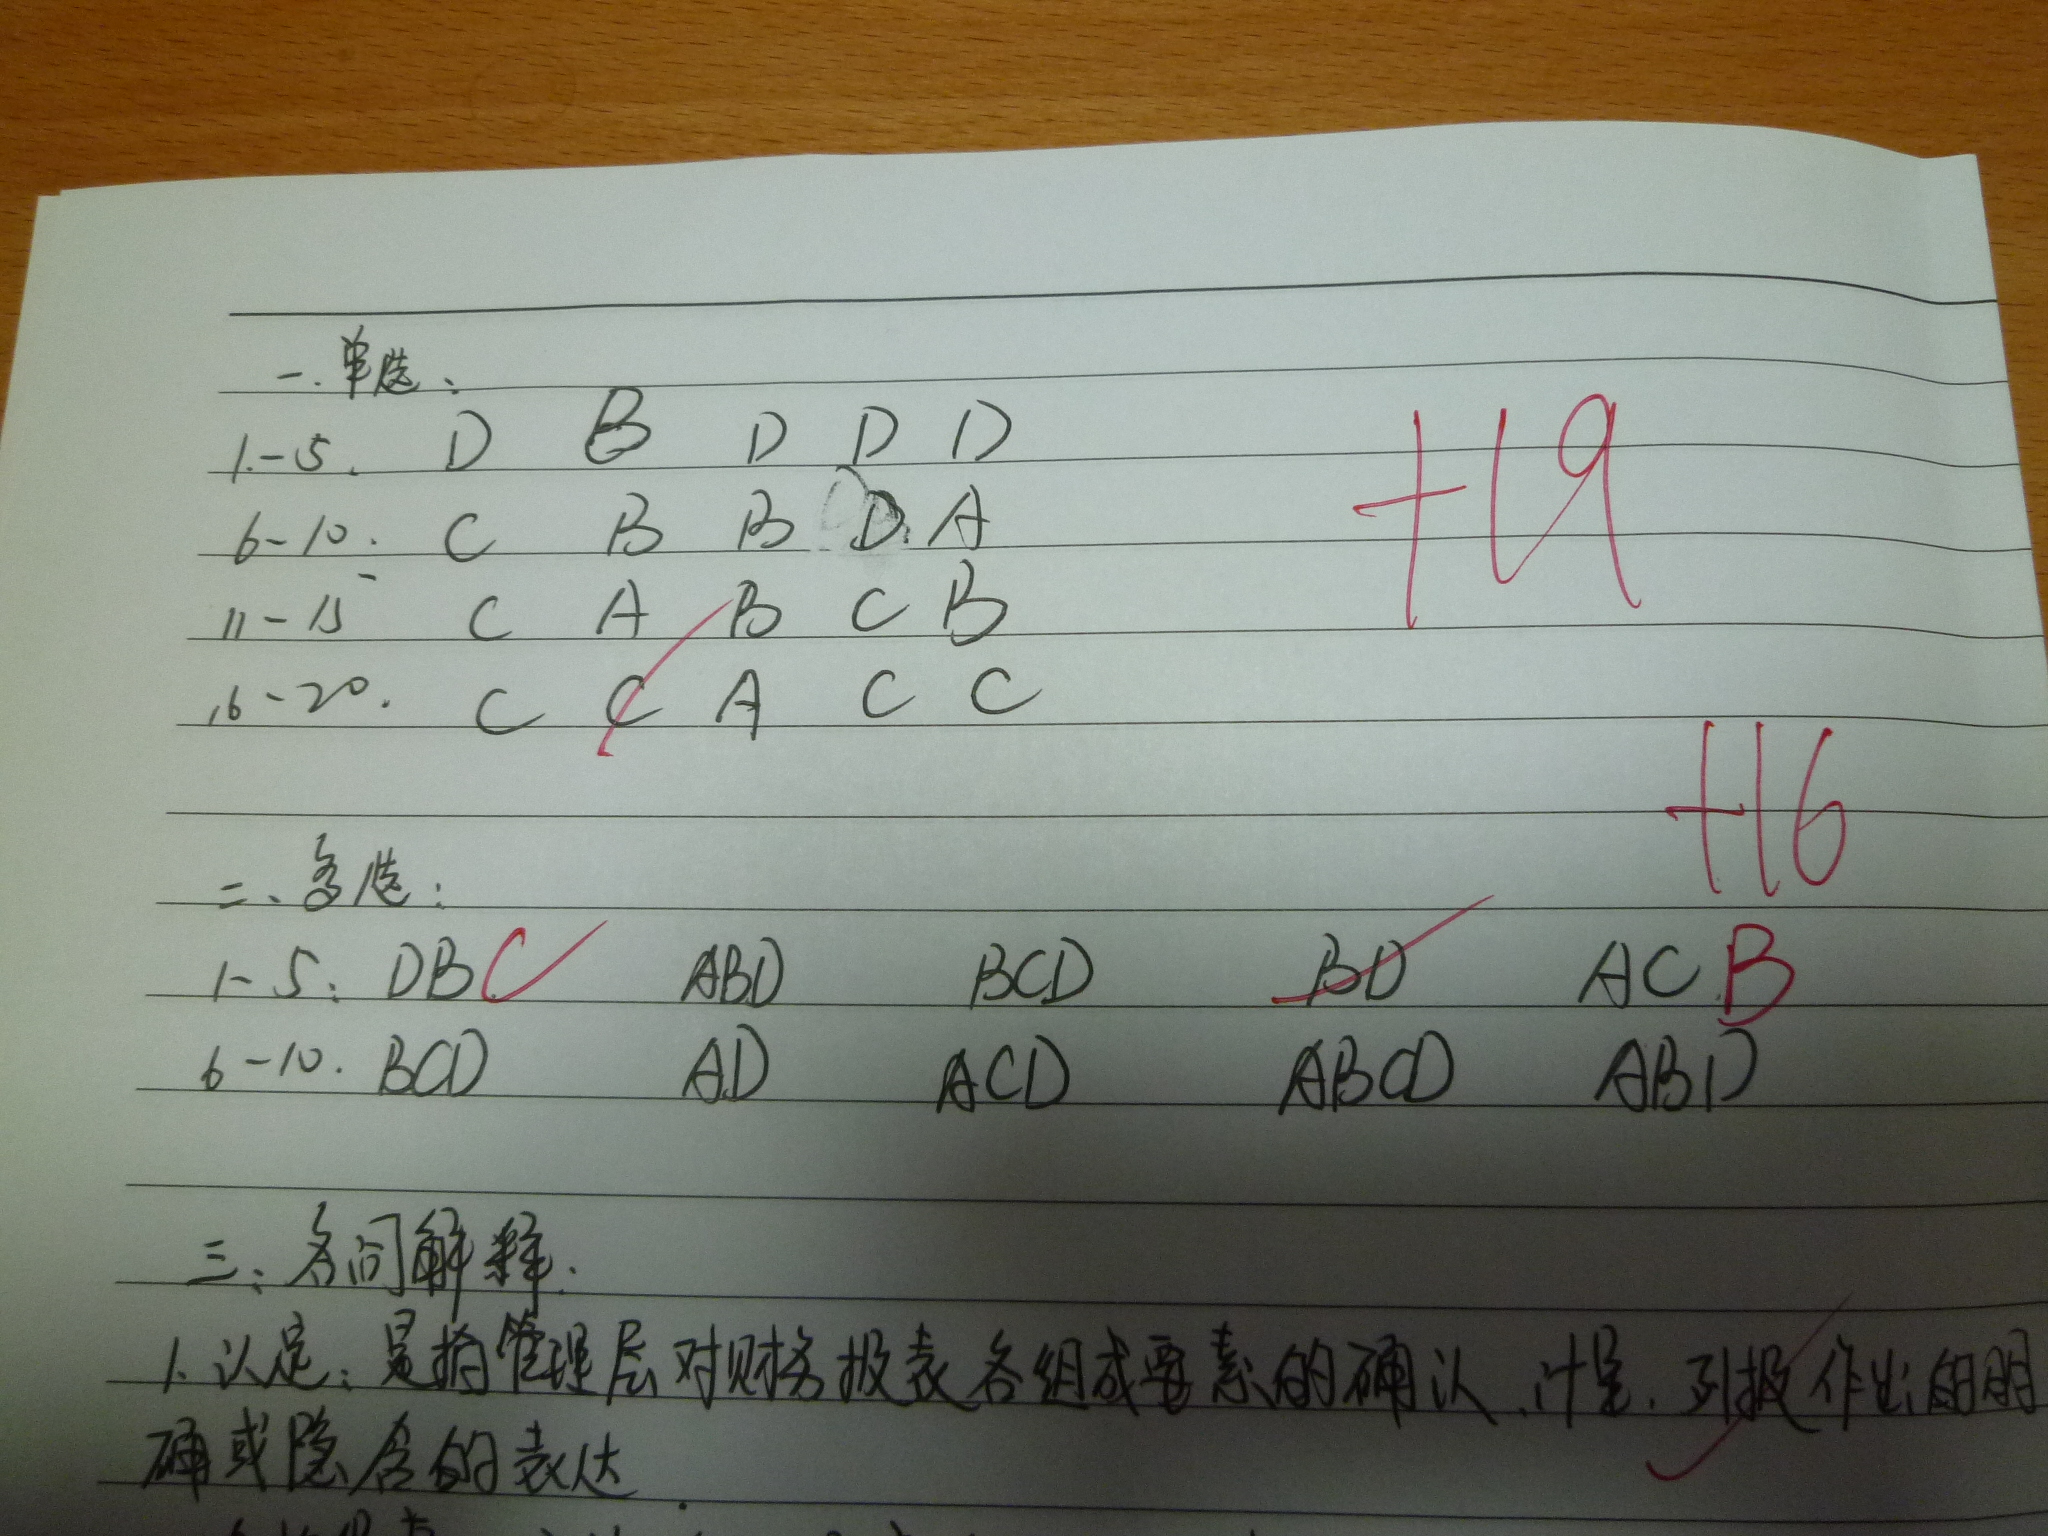 一.单选:
1-5. D B D D D
+19
6-10. C B B D. A
11-15 C A B C B
16-20. C C A C C
+16
二、多选:
1-5: DBC ABD BCD BD ACB
6-10. BCD AD ACD ABCD ABD
三、名词解释.
1.认定:是指管理层对财务报表各组成要素的确认、计量、列报作出的明
确或隐含的表达.